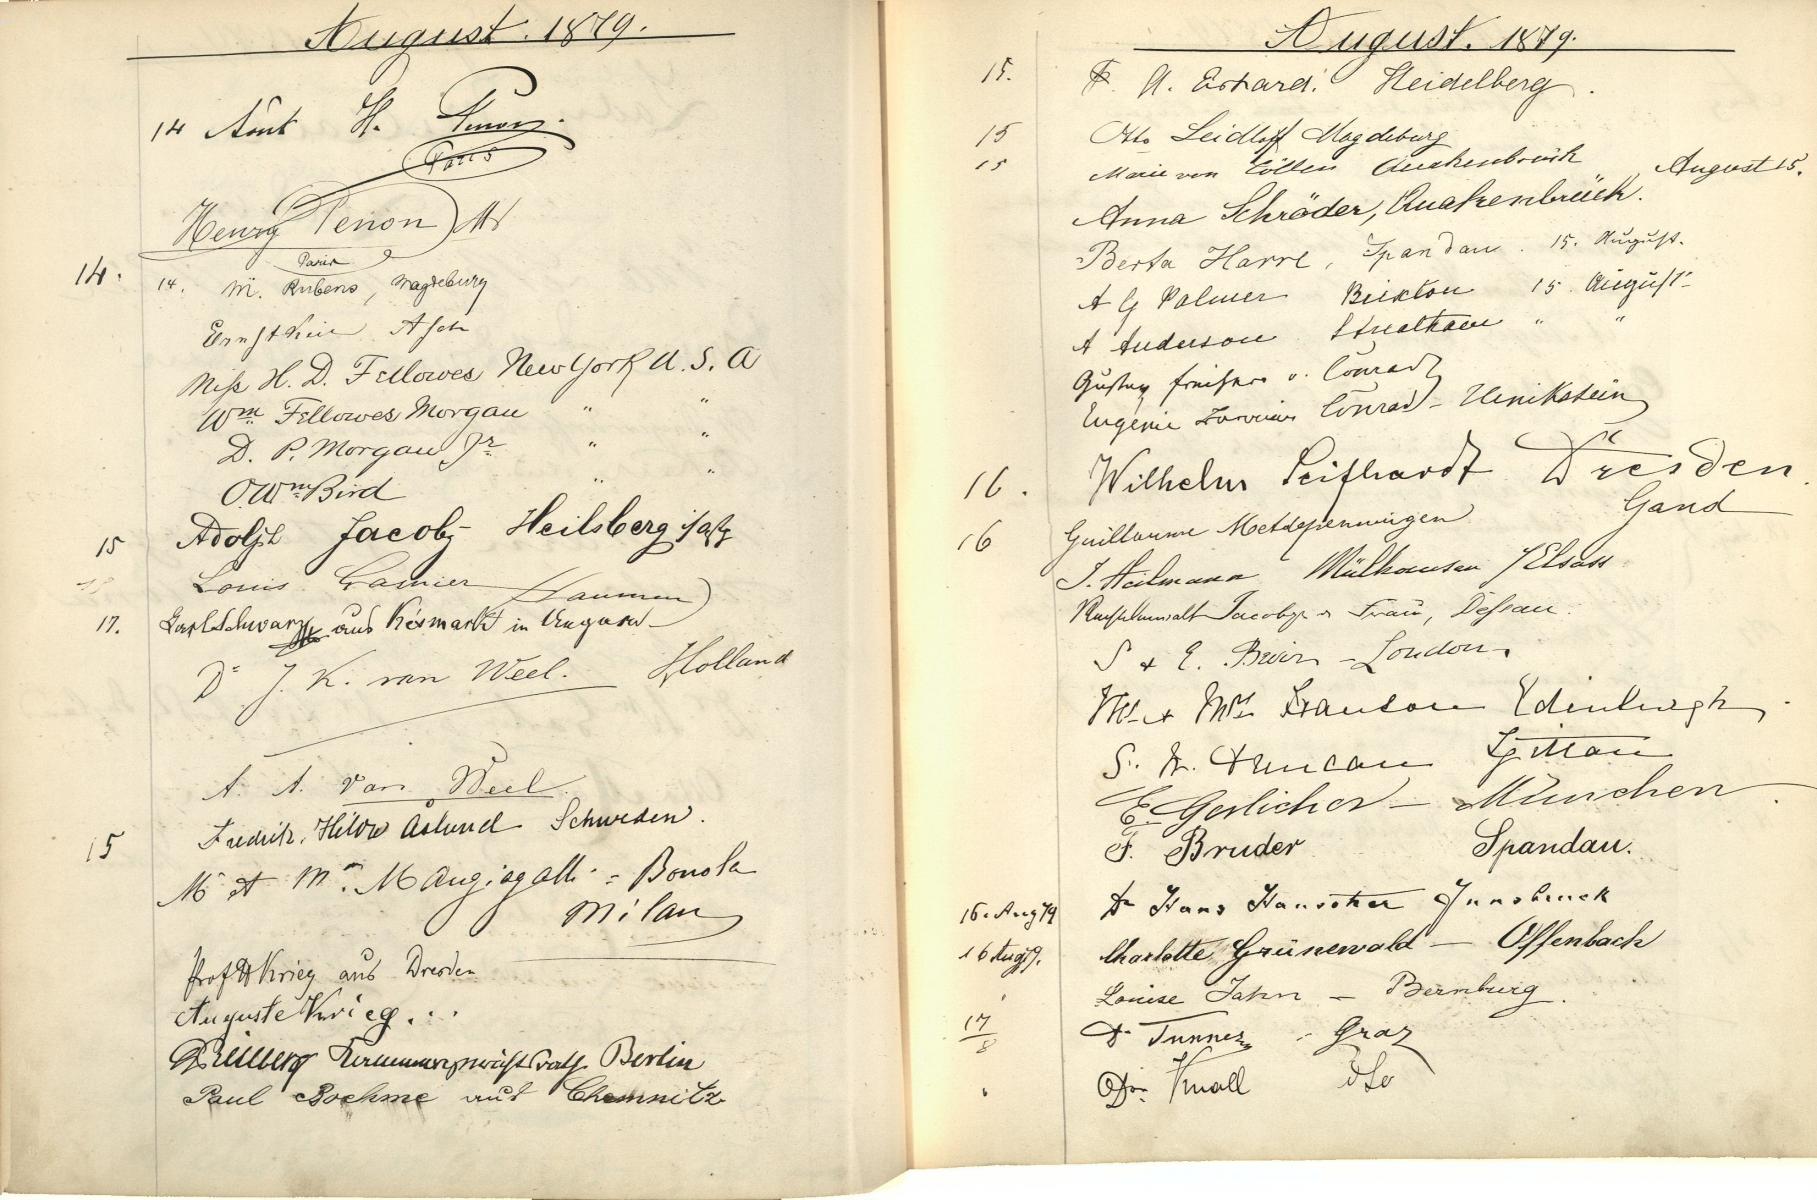 August. 1879.
14 Août H. Penon.
Paris
Henry Penon
Paris
14.
14. M. Rubens, Magdeburg
Ernst Asch
Miss H. D. Fellowes New York U. S. A
Wm Fellowes Morgan " "
D. P. Morgan Jr " "
O. Wm Bird " "
15 Adolf Jacoby Heilsberg
Louis
17. Carl Schwarz aus Késmarkt in Ungarn
Dr J. K. van Weel. Holland
A. A. van Weel
Fredrik, Hilda Åslund Schweden.
15 M et Mme Mangiagalli = Bonola
Milan
Prof Dr Krieg aus Dresden
Auguste Krieg. . .
Berlin
Paul Boehme aus Chemnitz
August. 1879.
15. F. A. Erhard. Heidelberg.
15 Otto Leidloff Magdeburg
15 Marie von Quakenbrück
Anna Schröder, Quakenbrück. August 15.
Berta Harre, Spandau. 15. August.
A G Palmer Brixton 15. August
A Anderson Streatham " "
Gustav Freiherr v. Conrad
Eugénie Conrad-Henikstein
16. Wilhelm Dresden.
16 Guillaume Metdepenningen Gand
J. Heilmann Mülhausen / Elsass
Rechtsanwalt Jacoby u Frau, Dessau.
S & E. London.
Mr & Mrs Edinburgh.
S. W. Duncan
E. Gerlicher - München.
F. Bruder Spandau.
16. Aug 79 Dr Hans Innsbruck
16 Aug 79. Charlotte Grünewald — Offenbach
Louise Jahn — Bernburg.
17/8 Dr Tunner - Graz
Dr Knall dto